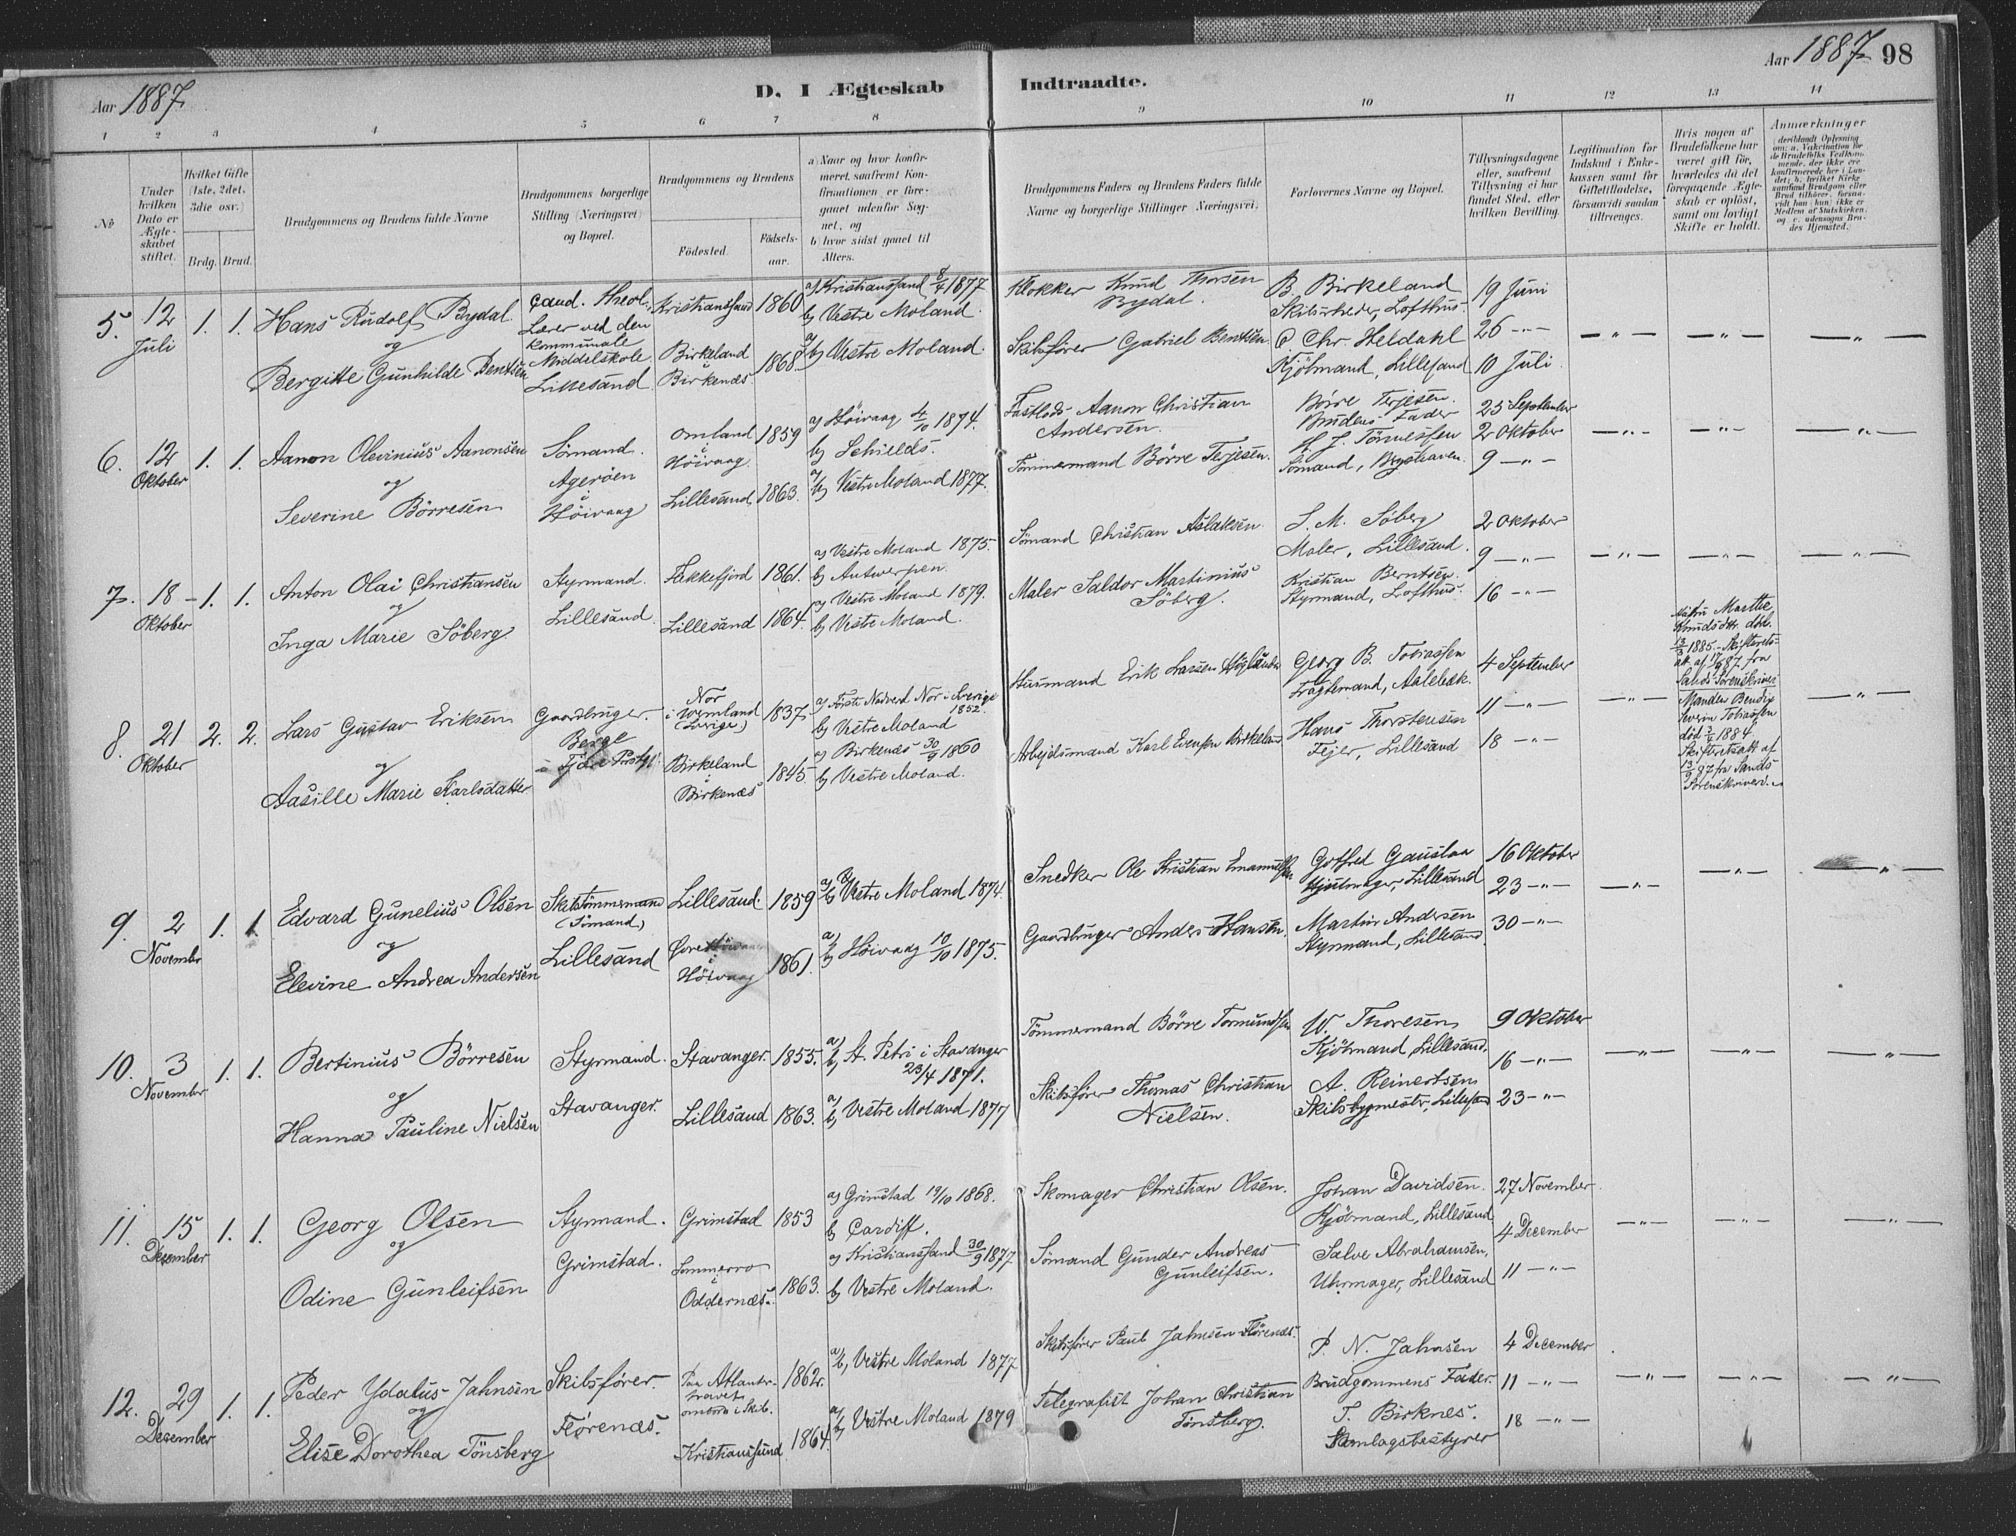 Aar 1887.
D. I Ægteskab Indtraadte.
Aar 1887 98
1 2 3 4 5 6 7 8 9 10 11 12 13 14
No
Under hvilken Dato er Ægteskabet stiftet.
Hvilket Gifte (1ste, 2det, 3die osv.)
Brdg. Brud.
Brudgommens og Brudens fulde Navne
Brudgommens borgerlige Stilling (Næringsvei) og Bopæl.
Brudgommens og Brudens
Fødested.
Fødselsaar.
a) Naar og hvor konfirmeret, saafremt Konfirmationen er foregaaet udenfor Sognet, og
b) hvor sidst gaaet til Alters.
Brudgommens Faders og Brudens Faders fulde Navne og borgerlige Stillinger (Næringsvei).
Forlovernes Navne og Bopæl.
Tillysningsdagene eller, saafremt Tillysning ei har fundet Sted, efter hvilken Bevilling.
Legitimation for Indskud i Enkekassen samt for Giftetilladelse, forsaavidt saadan tiltrænges.
Hvis nogen af Brudefolkene har været gift før, hvorledes da det foregaaende Ægteskab er opløst, samt om lovligt Skifte er holdt.
Anmærkninger
(deriblandt Oplysning om: a. Vakcination for de Brudefolks Vedkommende, der ikke ere konfirmerede her i Landet; b. hvilket Kirkesamfund Brudgom eller Brud tilhører, forsaavidt han (hun) ikke er Medlem af Statskirken, og c. udensogns Brudes Hjemsted.)
5. 12 Juli 1. 1.
Hans Rudolf Bydal
og
Bergitte Gunhilde Bentsen
Cand. theol.
Lærer ved den
kommunale
Middelskole
Lillesand
Kristianssand 1860
Birkeland
i
Birkenæs 1868
a) Kristianssand 8/4 1877
b) Vestre Moland.
a/b) Vestre Moland.
Klokker Knud Thorsen
Bydal.
Skibsfører Gabriel Bentsen
B Birkeland
Skibsrheder, Lofthus.
C Chr. Heldahl
Kjøbmand, Lillesand
19 Juni
26 -"-
10 Juli
-"- -"- -"-
6. 12 Oktober 1. 1.
Aanon Olevinius Aanonsen
og
Severine Börresen
Sömand.
Ageröen
i
Höivaag
Omland
i
Höivaag 1859
Lillesand 1863.
a) Höivaag 4/10 1874.
b) Schields.
a/b) Vestre Moland 1877.
Aanon Christian
Andersen.
Tömmermand Börre Terjesen.
Börre Terjesen.
Brudens Fader
H J. Tönnessen
Sömand,
25 September
2 Oktober
9 -"-
-"- -"- -"-
7. 18 - Oktober 1. 1.
Anton Olai Christiansen
og
Inga Marie Söberg
Styrmand.
Lillesand.
Flekkefjord 1861.
Lillesand 1864.
a) Vestre Moland 1875.
b) Antwerpen.
a) Vestre Moland 1879.
b) Vestre Moland.
Sömand Christian Aslaksen
Maler Saldor Martinius
Söberg.
S. M. Söberg
Maler, Lillesand.
Kristian Berntsen.
Styrmand, Lofthus.
2 Oktober
9 -"-
16 -"-
-"- -"- -"-
8. 21 Oktober 2. 2.
Lars Gustav Eriksen
og
Aasille Marie Karlsdatter
Gaardbruger.
Berge
Nor
i Vermland
(Sverige) 1837.
Birkeland
i
Birkenæs 1845
Nor i Sverige
1852.
b) Vestre Moland
a) Birkenæs 30/9 1860
b) Vestre Moland.
Husmand Erik Larsen
Arbeidsmand Karl Evensen Birkeland
Georg B. Tobiassen
Fragtemand, Aalebæk.
Hans Thorstensen
Fejer, Lillesand
4 September
11 -"-
18 -"-
-"-
Marthe
Knudsdtr. död
1885.
fra
Sands Sorenskriver
Manden Bendix
Severin Tobiassen
död 1884
Skifteretsatt af
13/9 87 fra Sands
Sorenskriveri.
-"-
9. 2 November 1. 1.
Edvard Gunelius Olsen
og
Elevine Andrea Andersen
Skibstömmermand
(Sömand)
Lillesand
Lillesand. 1859
i
Höivaag 1861.
a/b) Vestre Moland 1874.
a/b) Höivaag 10/10 1875.
Snedker Ole Kristian Emanuelsen
Gaardbruger Anders Hansen.
Gotfred Gauslaa
Hjulmager, Lillesand
Martin Andersen
Styrmand, Lillesand
16 Oktober
23 -"-
30 -"-
-"- -"- -"-
10. 3 November 1. 1.
Bertinius Börresen
og
Hanna Pauline Nielsen
Styrmand.
Stavanger.
Stavanger. 1855.
Lillesand 1863.
a/b) St. Petri i Stavanger
23/4 1871.
a/b) Vestre Moland 1877
Tömmermand Börre Tormundsen
Skibsfører Thomas Christian
Nielsen.
W. Thoresen
Kjöbmand, Lillesand.
A. Reinertsen
Skibsbygmestr, Lillesand
9 Oktober
16 -"-
23 -"-
-"- -"- -"-
11. 15 December 1. 1.
Georg Olsen
og
Odine Gunleifsen
Styrmand.
Grimstad.
Grimstad 1853
Sommerro
i
Oddernæs. 1863.
a) Grimstad 19/10 1868.
b) Cardiff.
a) Kristianssand 30/9 1877
b) Vestre Moland.
Skomager Christian Olsen.
Sömand Gunder Andreas
Gunleifsen.
Johan Davidsen.
Kjöbmand, Lillesand
Salve Abrahamsen,
Uhrmager, Lillesand
27 November
4 December
11 -"-
-"- -"- -"-
12. 29 December 1. 1.
Peder Ydalus Jahnsen
og
Elise Dorothea Tönsberg
Skibsfører.
Flørenæs.
Paa Atlanterhavet
ombord i Skib. 1862.
Kristianssund 1864.
a/b) Vestre Moland 1877
a/b) Vestre Moland 1879
Skibsfører Paul Jahnsen Flørenæs.
Telegrafist Johan Christian
Tönsberg.
P. N. Jahnsen
Brudgommens Fader.
T. Birknes.
Samlagsbestyrer
4 December
11 -"-
18 -"-
-"- -"- -"-